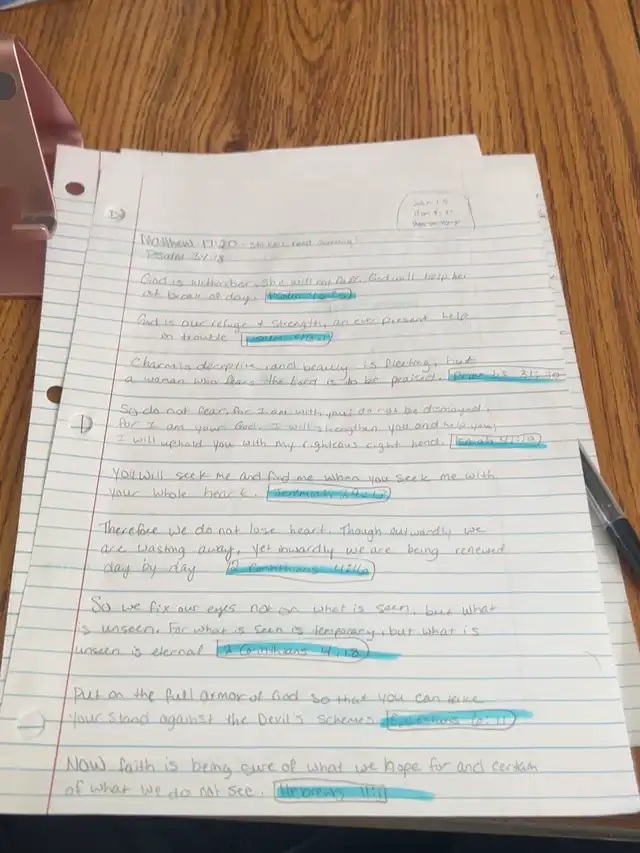 Matthew 17:20
Psalm 34:18
God is within her. She will not fall. God will help her
at break of day. Psalm 46:5
God is our refuge + strength, an ever present help
in trouble Psalm 46:1
Charm is deceptive, and beauty is fleeting, but
a woman who fears the Lord is to be praised. Proverbs 31:30
So do not fear, for I am with you; do not be dismayed,
for I am your God. I will strengthen you and help you;
I will uphold you with my righteous right hand. Isaiah 41:10
You will seek me and find me when you seek me with
your whole heart. Jeremiah 29:13
Therefore we do not lose heart. Though outwardly we
are wasting away, yet inwardly we are being renewed
day by day 2 Corinthians 4:16
So we fix our eyes not on what is seen, but what
is unseen. For what is seen is temporary, but what is
unseen is eternal 2 Corinthians 4:18
Put on the full armor of God so that you can take
your stand against the Devil's schemes. Ephesians 6:11
Now faith is being sure of what we hope for and certain
of what we do not see. Hebrews 11:1